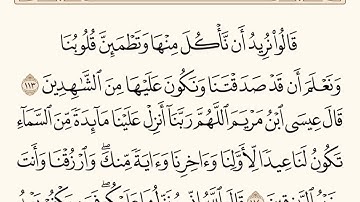 قَالُواْ نُرِيدُ أَن نَّأۡكُلَ مِنۡهَا وَتَطۡمَئِنَّ قُلُوبُنَا
وَنَعۡلَمَ أَن قَدۡ صَدَقۡتَنَا وَنَكُونَ عَلَيۡهَا مِنَ ٱلشَّٰهِدِينَ ١١٣
قَالَ عِيسَى ٱبۡنُ مَرۡيَمَ ٱللَّهُمَّ رَبَّنَآ أَنزِلۡ عَلَيۡنَا مَآئِدَةٗ مِّنَ ٱلسَّمَآءِ
تَكُونُ لَنَا عِيدٗا لِّأَوَّلِنَا وَءَاخِرِنَا وَءَايَةٗ مِّنكَۖ وَٱرۡزُقۡنَا وَأَنتَ